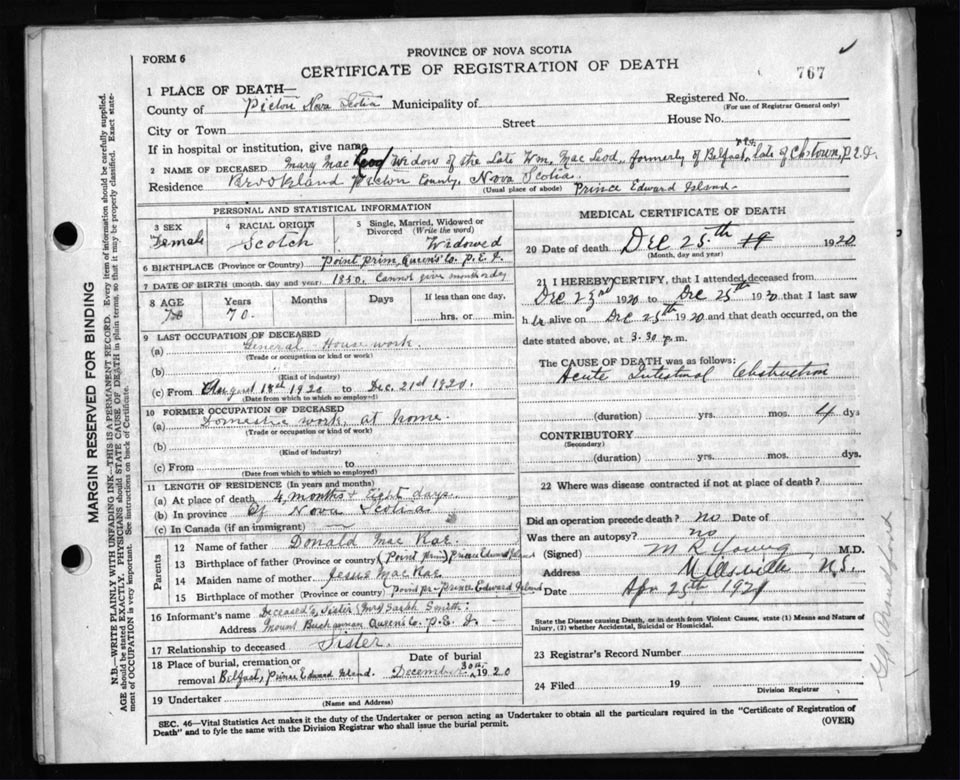 PROVINCE OF NOVA SCOTIA
FORM 6
CERTIFICATE OF REGISTRATION OF DEATH
767
1 PLACE OF DEATH—
County of Pictou Nova Scotia Municipality of
Registered No.
(For use of Registrar General only)
City or Town Street House No.
If in hospital or institution, give name
2 NAME OF DECEASED Mary Mac Leod Widow of the Late Wm. Mac Leod, formerly of Belfast, P.E.I. late of Chstown, P.E.I.
Residence Brookland Pictou County, Nova Scotia. (Usual place of abode) Prince Edward Island.
PERSONAL AND STATISTICAL INFORMATION
3 SEX Female
4 RACIAL ORIGIN Scotch
5 Single, Married, Widowed or Divorced (Write the word) Widowed
6 BIRTHPLACE (Province or Country) Point Prim, Queen's Co. P.E.I.
7 DATE OF BIRTH (month, day and year) 1850. Cannot give month or day
8 AGE Years Months Days If less than one day,
70 70. hrs. or min.
9 LAST OCCUPATION OF DECEASED
(a) General House work.
(Trade or occupation or kind of work)
(b)
(Kind of industry)
(c) From August 18th 1920 to Dec. 21st 1920.
(Date from which to which so employed)
10 FORMER OCCUPATION OF DECEASED
(a) Domestic work, at home.
(Trade or occupation or kind of work)
(b)
(Kind of industry)
(c) From to
(Date from which to which so employed)
11 LENGTH OF RESIDENCE (In years and months)
(a) At place of death 4 months & eight days.
(b) In province of Nova Scotia.
(c) In Canada (if an immigrant) —
Parents
12 Name of father Donald Mac Rae
13 Birthplace of father (Province or country) (Point Prim) Prince Edward Island
14 Maiden name of mother Jessie Mac Rae
15 Birthplace of mother (Province or country) Point Pr— Prince Edward Island
16 Informant's name Deceased's Sister (Mrs) Sarah Smith:
Address Mount Buchannan Queen's Co. P.E.I. —
17 Relationship to deceased Sister.
18 Place of burial, cremation or removal Belfast, Prince Edward Island.
Date of burial December 30th, 1920
19 Undertaker
(Name and Address)
MEDICAL CERTIFICATE OF DEATH
20 Date of death Dec 25th 19 1920
(Month, day and year)
21 I HEREBY CERTIFY, that I attended deceased from
Dec 23rd 1920 to Dec 25th 1920 that I last saw
her alive on Dec 25th 1920 and that death occurred, on the
date stated above, at 3.30 p.m.
The CAUSE OF DEATH was as follows:
Acute Intestinal Obstruction
(duration) yrs. mos. 4 dys
CONTRIBUTORY
(Secondary)
(duration) yrs. mos. dys.
22 Where was disease contracted if not at place of death?
Did an operation precede death? no Date of
Was there an autopsy? no
(Signed) M R Young M.D.
Address N.S.
Date Apr 25th 1921
State the Disease causing Death, or in death from Violent Causes, state (1) Means and Nature of Injury, (2) whether Accidental, Suicidal or Homicidal.
23 Registrar's Record Number
24 Filed 19
Division Registrar
SEC. 46—Vital Statistics Act makes it the duty of the Undertaker or person acting as Undertaker to obtain all the particulars required in the "Certificate of Registration of
Death" and to fyle the same with the Division Registrar who shall issue the burial permit. (OVER)
MARGIN RESERVED FOR BINDING
N.B.—WRITE PLAINLY WITH UNFADING INK—THIS IS A PERMANENT RECORD. Every item of information should be carefully supplied.
AGE should be stated EXACTLY. PHYSICIANS should STATE CAUSE OF DEATH in plain terms, so that it may be properly classified. Exact statement of OCCUPATION is very important. See instructions on back of Certificate.